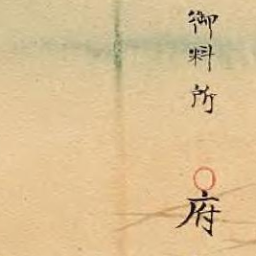 御料所
府